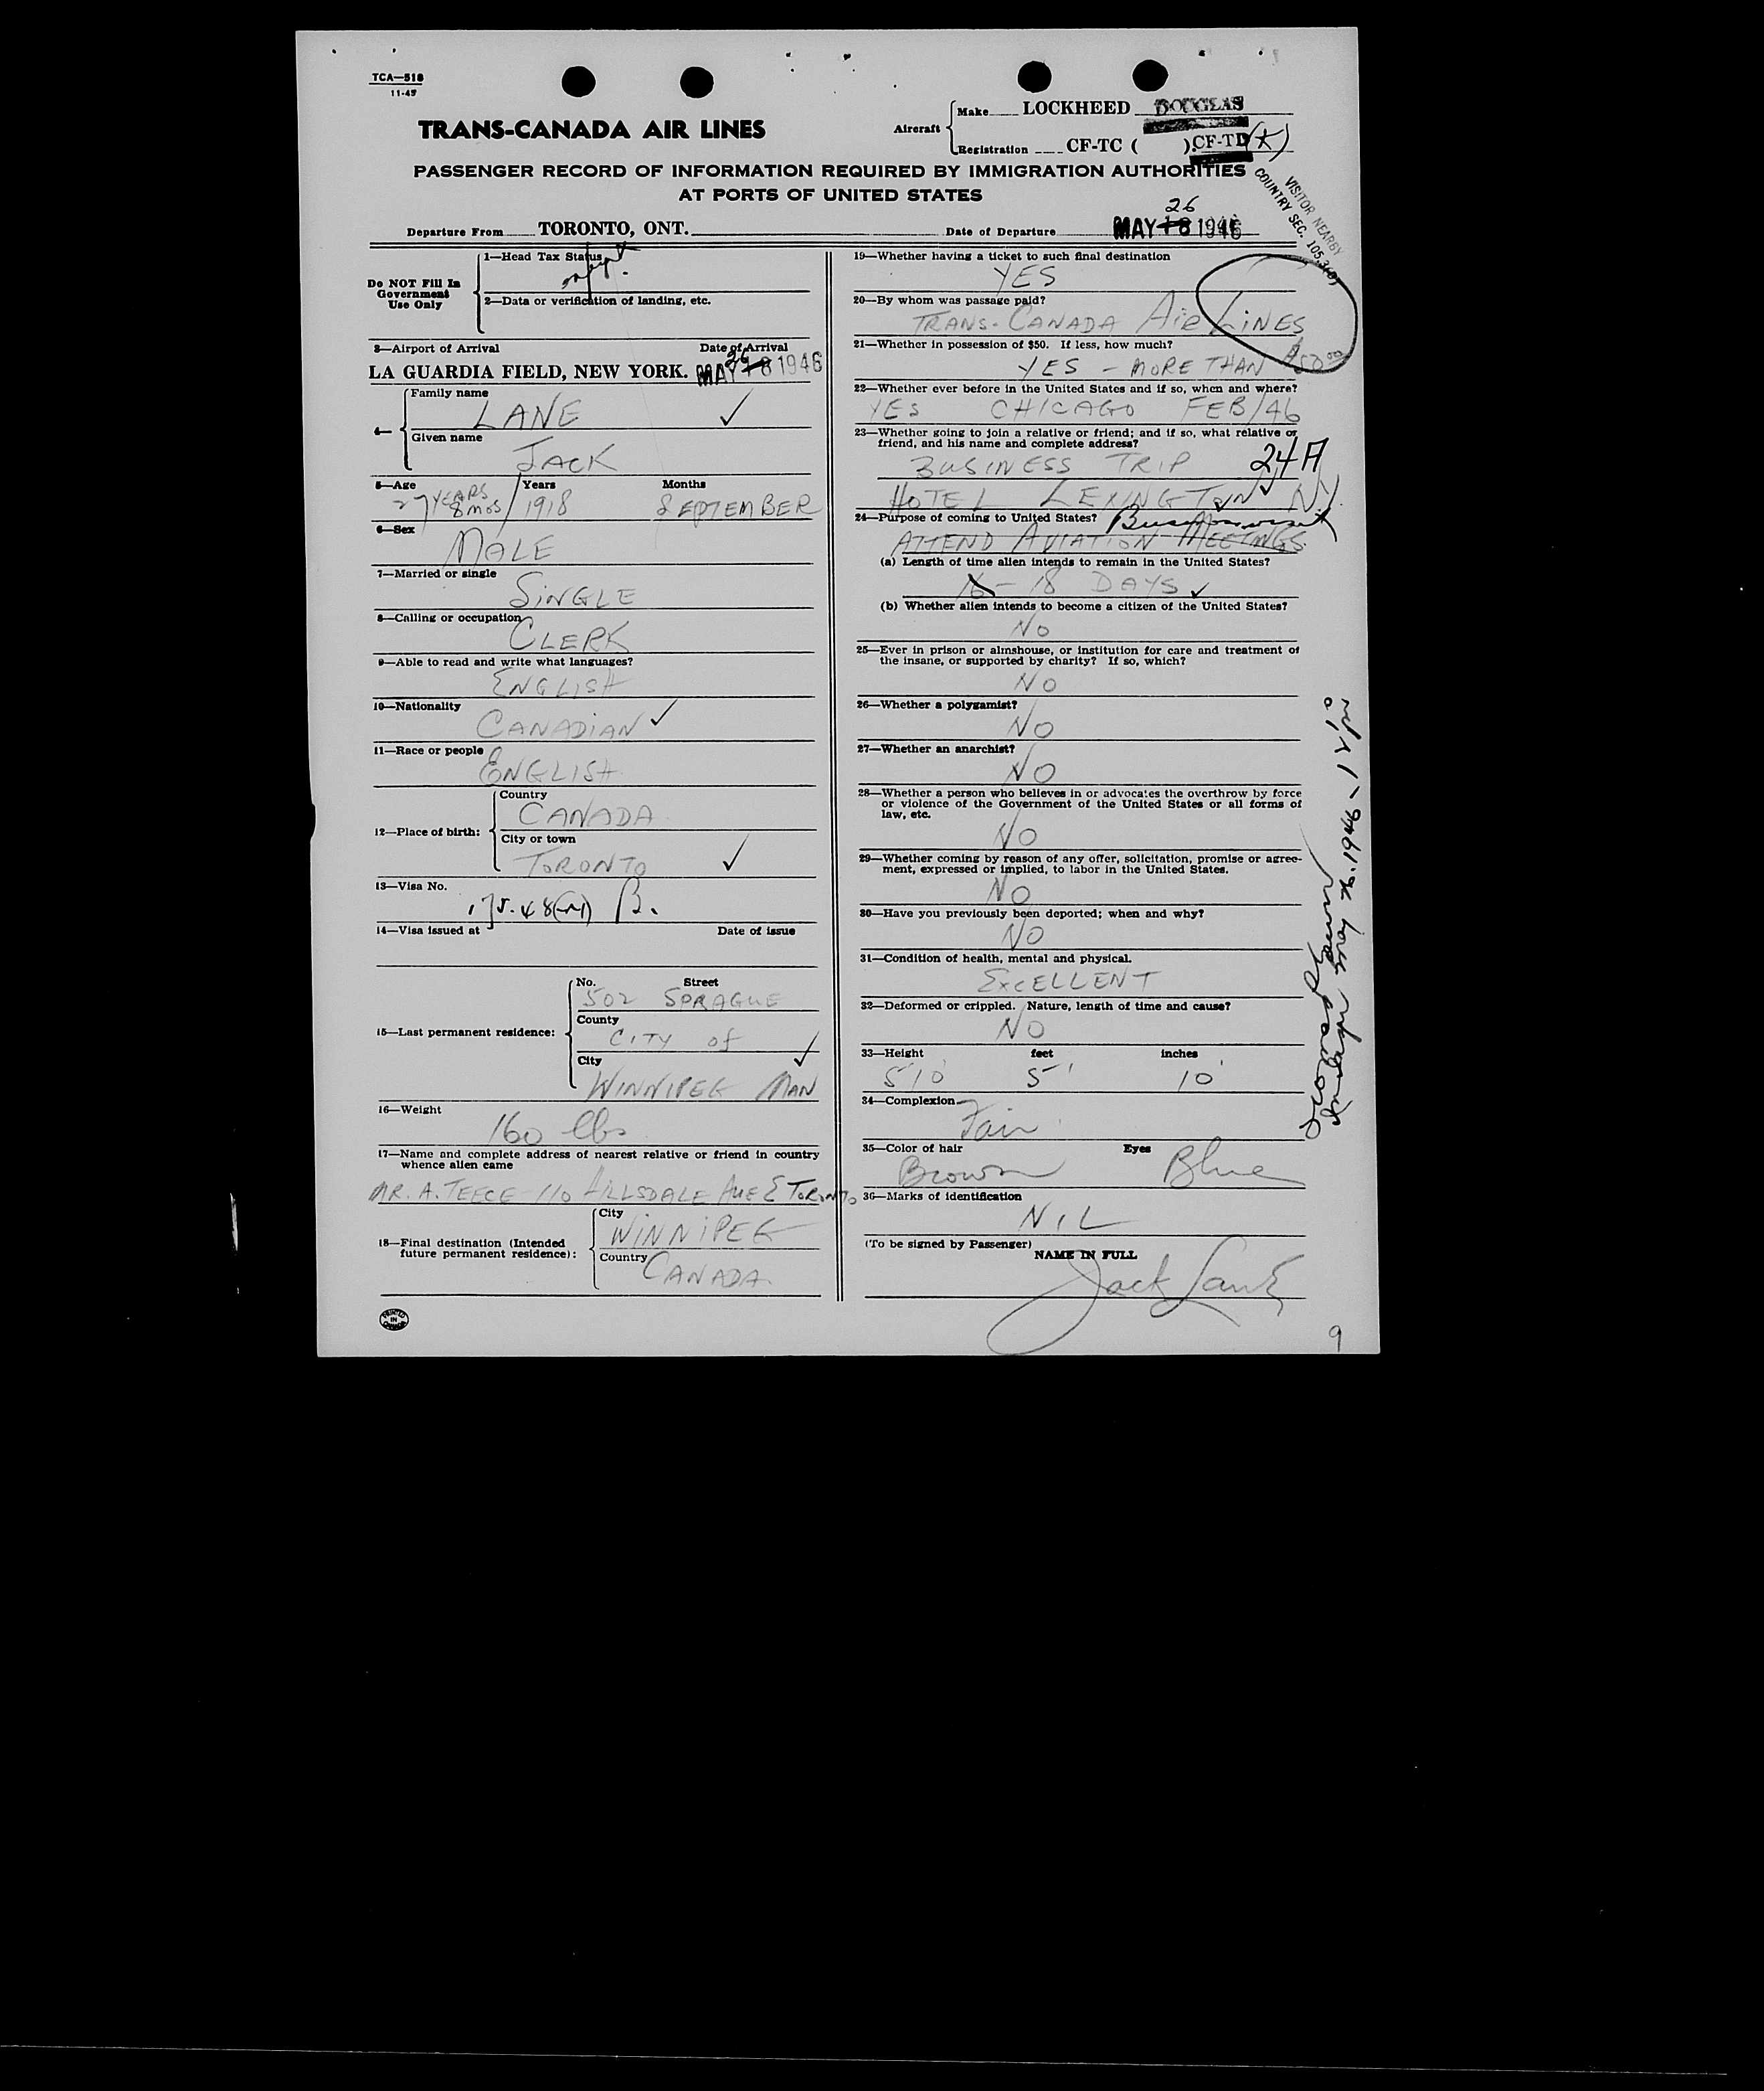 TCA—518
11-45
TRANS-CANADA AIR LINES
Aircraft
Make LOCKHEED DOUGLAS
Registration CF-TC ( ).CF-TD(K)
PASSENGER RECORD OF INFORMATION REQUIRED BY IMMIGRATION AUTHORITIES
AT PORTS OF UNITED STATES
VISITOR NEARBY
COUNTRY SEC. 105.3(
Departure From TORONTO, ONT.
Date of Departure MAY 18 26 1946
Do NOT Fill In
Government
Use Only
1—Head Tax Status
2—Data or verification of landing, etc.
3—Airport of Arrival Date of Arrival
LA GUARDIA FIELD, NEW YORK. MAY 18 26 1946
4—
Family name
LANE ✓
Given name
JACK
5—Age Years Months
27 YEARS 8 MOS / 1918 SEPTEMBER
6—Sex
MALE
7—Married or single
SINGLE
8—Calling or occupation
CLERK
9—Able to read and write what languages?
ENGLISH
10—Nationality
CANADIAN ✓
11—Race or people
ENGLISH
12—Place of birth:
Country
CANADA
City or town
TORONTO ✓
13—Visa No.
175.48 B.
14—Visa issued at Date of issue
15—Last permanent residence:
No. Street
502 SPRAGUE
County
CITY OF
City ✓
WINNIPEG MAN
16—Weight
160 lbs
17—Name and complete address of nearest relative or friend in country
whence alien came
MR. A. TEECE 110 HILLSDALE AVE E TORONTO
18—Final destination (Intended
future permanent residence):
City
WINNIPEG
Country
CANADA
PRINTED
IN
CANADA
19—Whether having a ticket to such final destination
YES
20—By whom was passage paid?
TRANS-CANADA AIR LINES
21—Whether in possession of $50. If less, how much?
YES - MORE THAN $50.00
22—Whether ever before in the United States and if so, when and where?
YES CHICAGO FEB/46
23—Whether going to join a relative or friend; and if so, what relative or
friend, and his name and complete address?
BUSINESS TRIP 24A
HOTEL LEXINGTON ✓ N.Y.
24—Purpose of coming to United States? Business visit
ATTEND AVIATION MEETINGS
(a) Length of time alien intends to remain in the United States?
16 - 18 DAYS ✓
(b) Whether alien intends to become a citizen of the United States?
NO
25—Ever in prison or almshouse, or institution for care and treatment of
the insane, or supported by charity? If so, which?
NO
26—Whether a polygamist?
NO
27—Whether an anarchist?
NO
28—Whether a person who believes in or advocates the overthrow by force
or violence of the Government of the United States or all forms of
law, etc.
NO
29—Whether coming by reason of any offer, solicitation, promise or agree-
ment, expressed or implied, to labor in the United States.
NO
30—Have you previously been deported; when and why?
NO
31—Condition of health, mental and physical.
EXCELLENT
32—Deformed or crippled. Nature, length of time and cause?
NO
33—Height feet inches
5'10 5' 10
34—Complexion
Fair
35—Color of hair Eyes
Brown Blue
36—Marks of identification
NIL
(To be signed by Passenger)
NAME IN FULL
Jack Lane
May 26. 1946
9